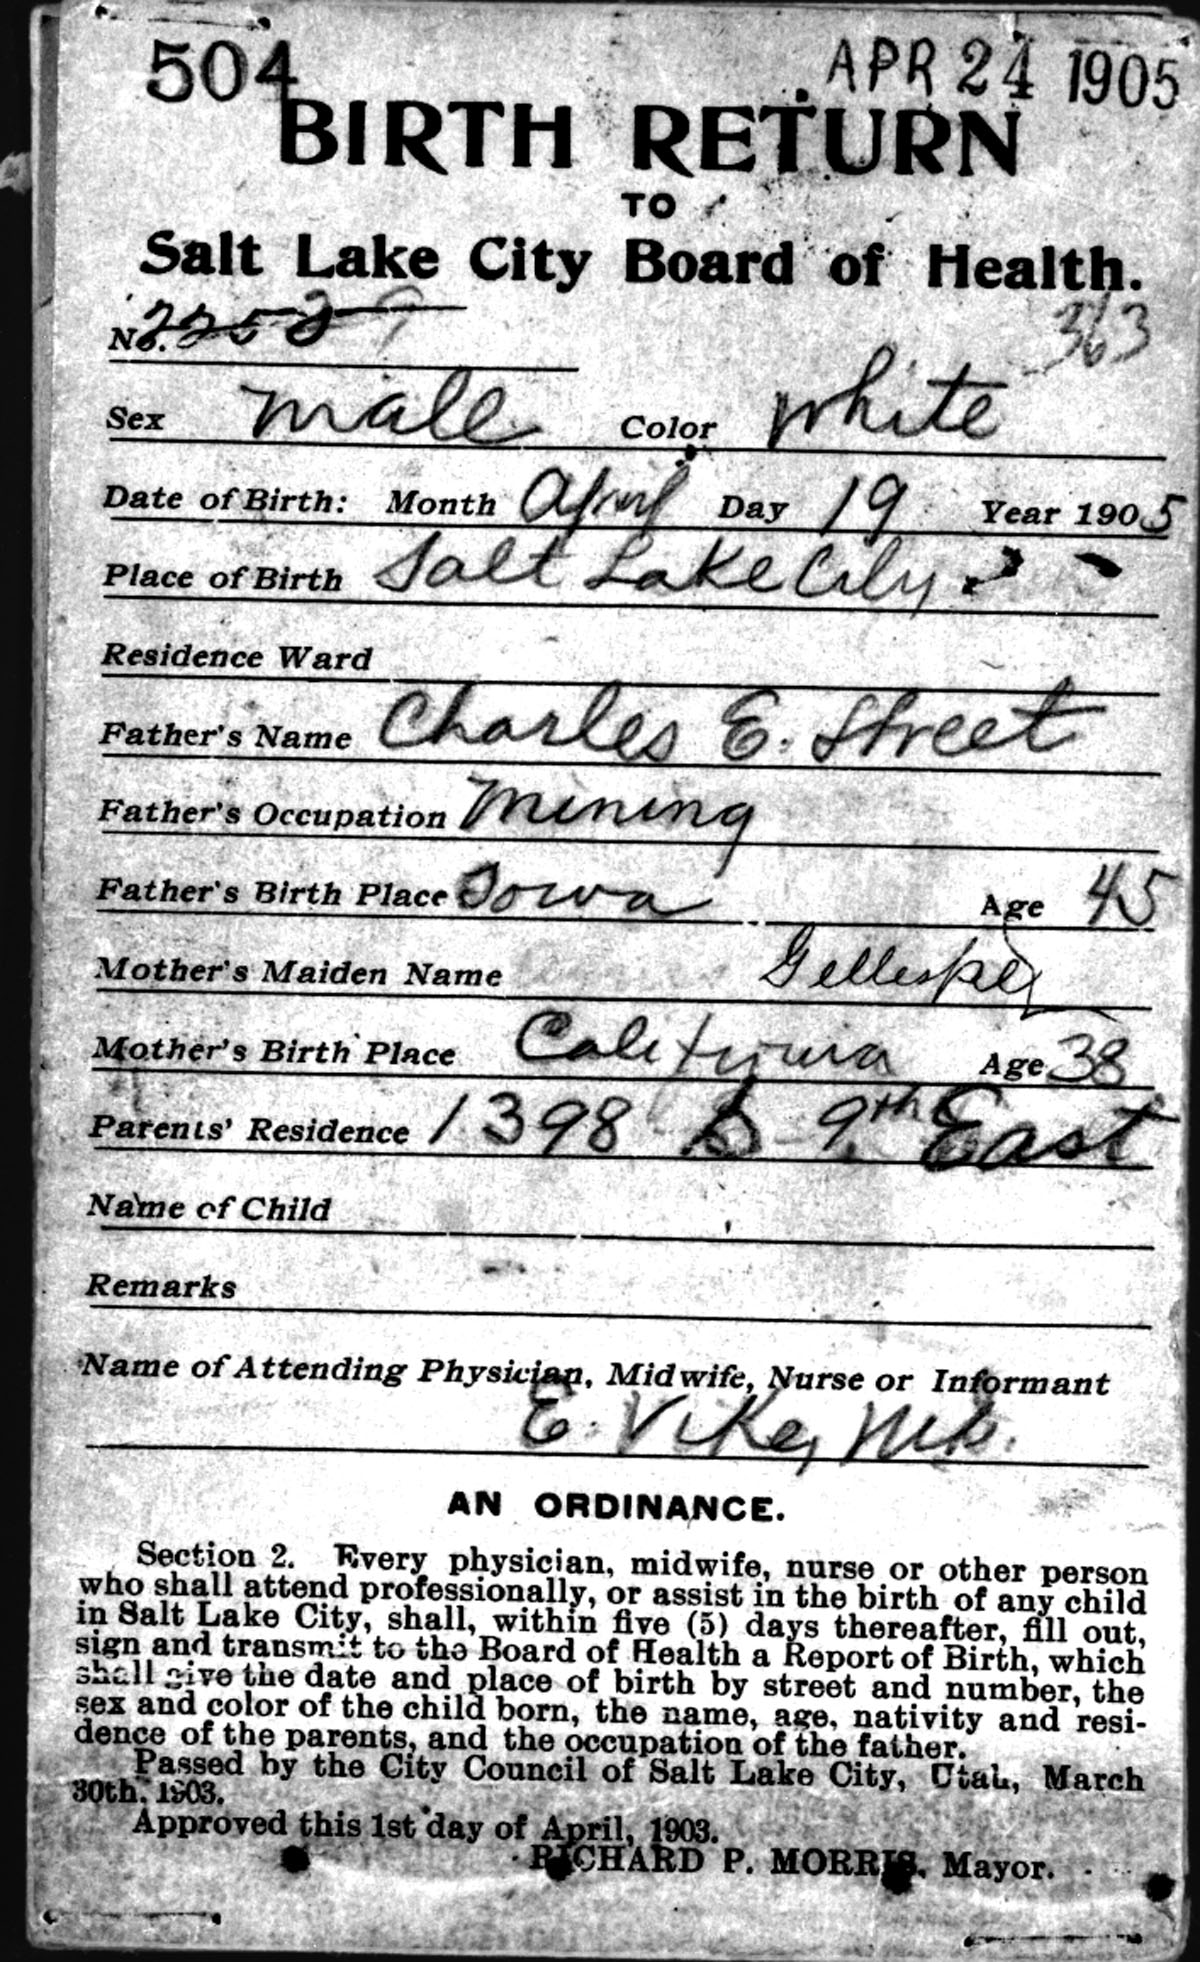 504 APR 24 1905
BIRTH RETURN
TO
Salt Lake City Board of Health.
No. 363
Sex male Color white
Date of Birth: Month April Day 19 Year 1905
Place of Birth Salt Lake City
Residence Ward
Father's Name Charles E. Street
Father's Occupation Mining
Father's Birth Place Iowa Age 45
Mother's Maiden Name Gillespey
Mother's Birth Place California Age 38
Parents' Residence 1398 S 9th East
Name of Child
Remarks
Name of Attending Physician, Midwife, Nurse or Informant
E. Vike, M.D.
AN ORDINANCE.
Section 2. Every physician, midwife, nurse or other person
who shall attend professionally, or assist in the birth of any child
in Salt Lake City, shall, within five (5) days thereafter, fill out,
sign and transmit to the Board of Health a Report of Birth, which
shall give the date and place of birth by street and number, the
sex and color of the child born, the name, age, nativity and resi-
dence of the parents, and the occupation of the father.
Passed by the City Council of Salt Lake City, Utah, March
30th, 1903.
Approved this 1st day of April, 1903.
RICHARD P. MORRIS, Mayor.